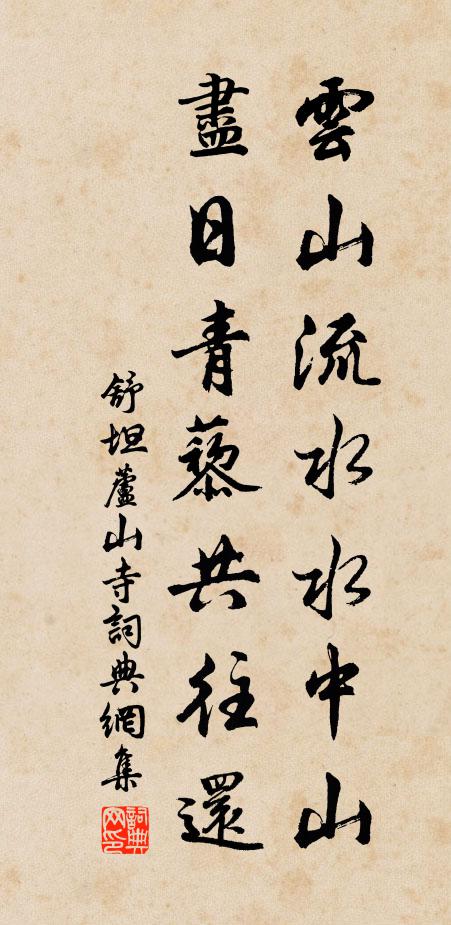 雲山流水水中山
盡日青藜共往還
舒坦蘆山寺詞典網集
詞典網印